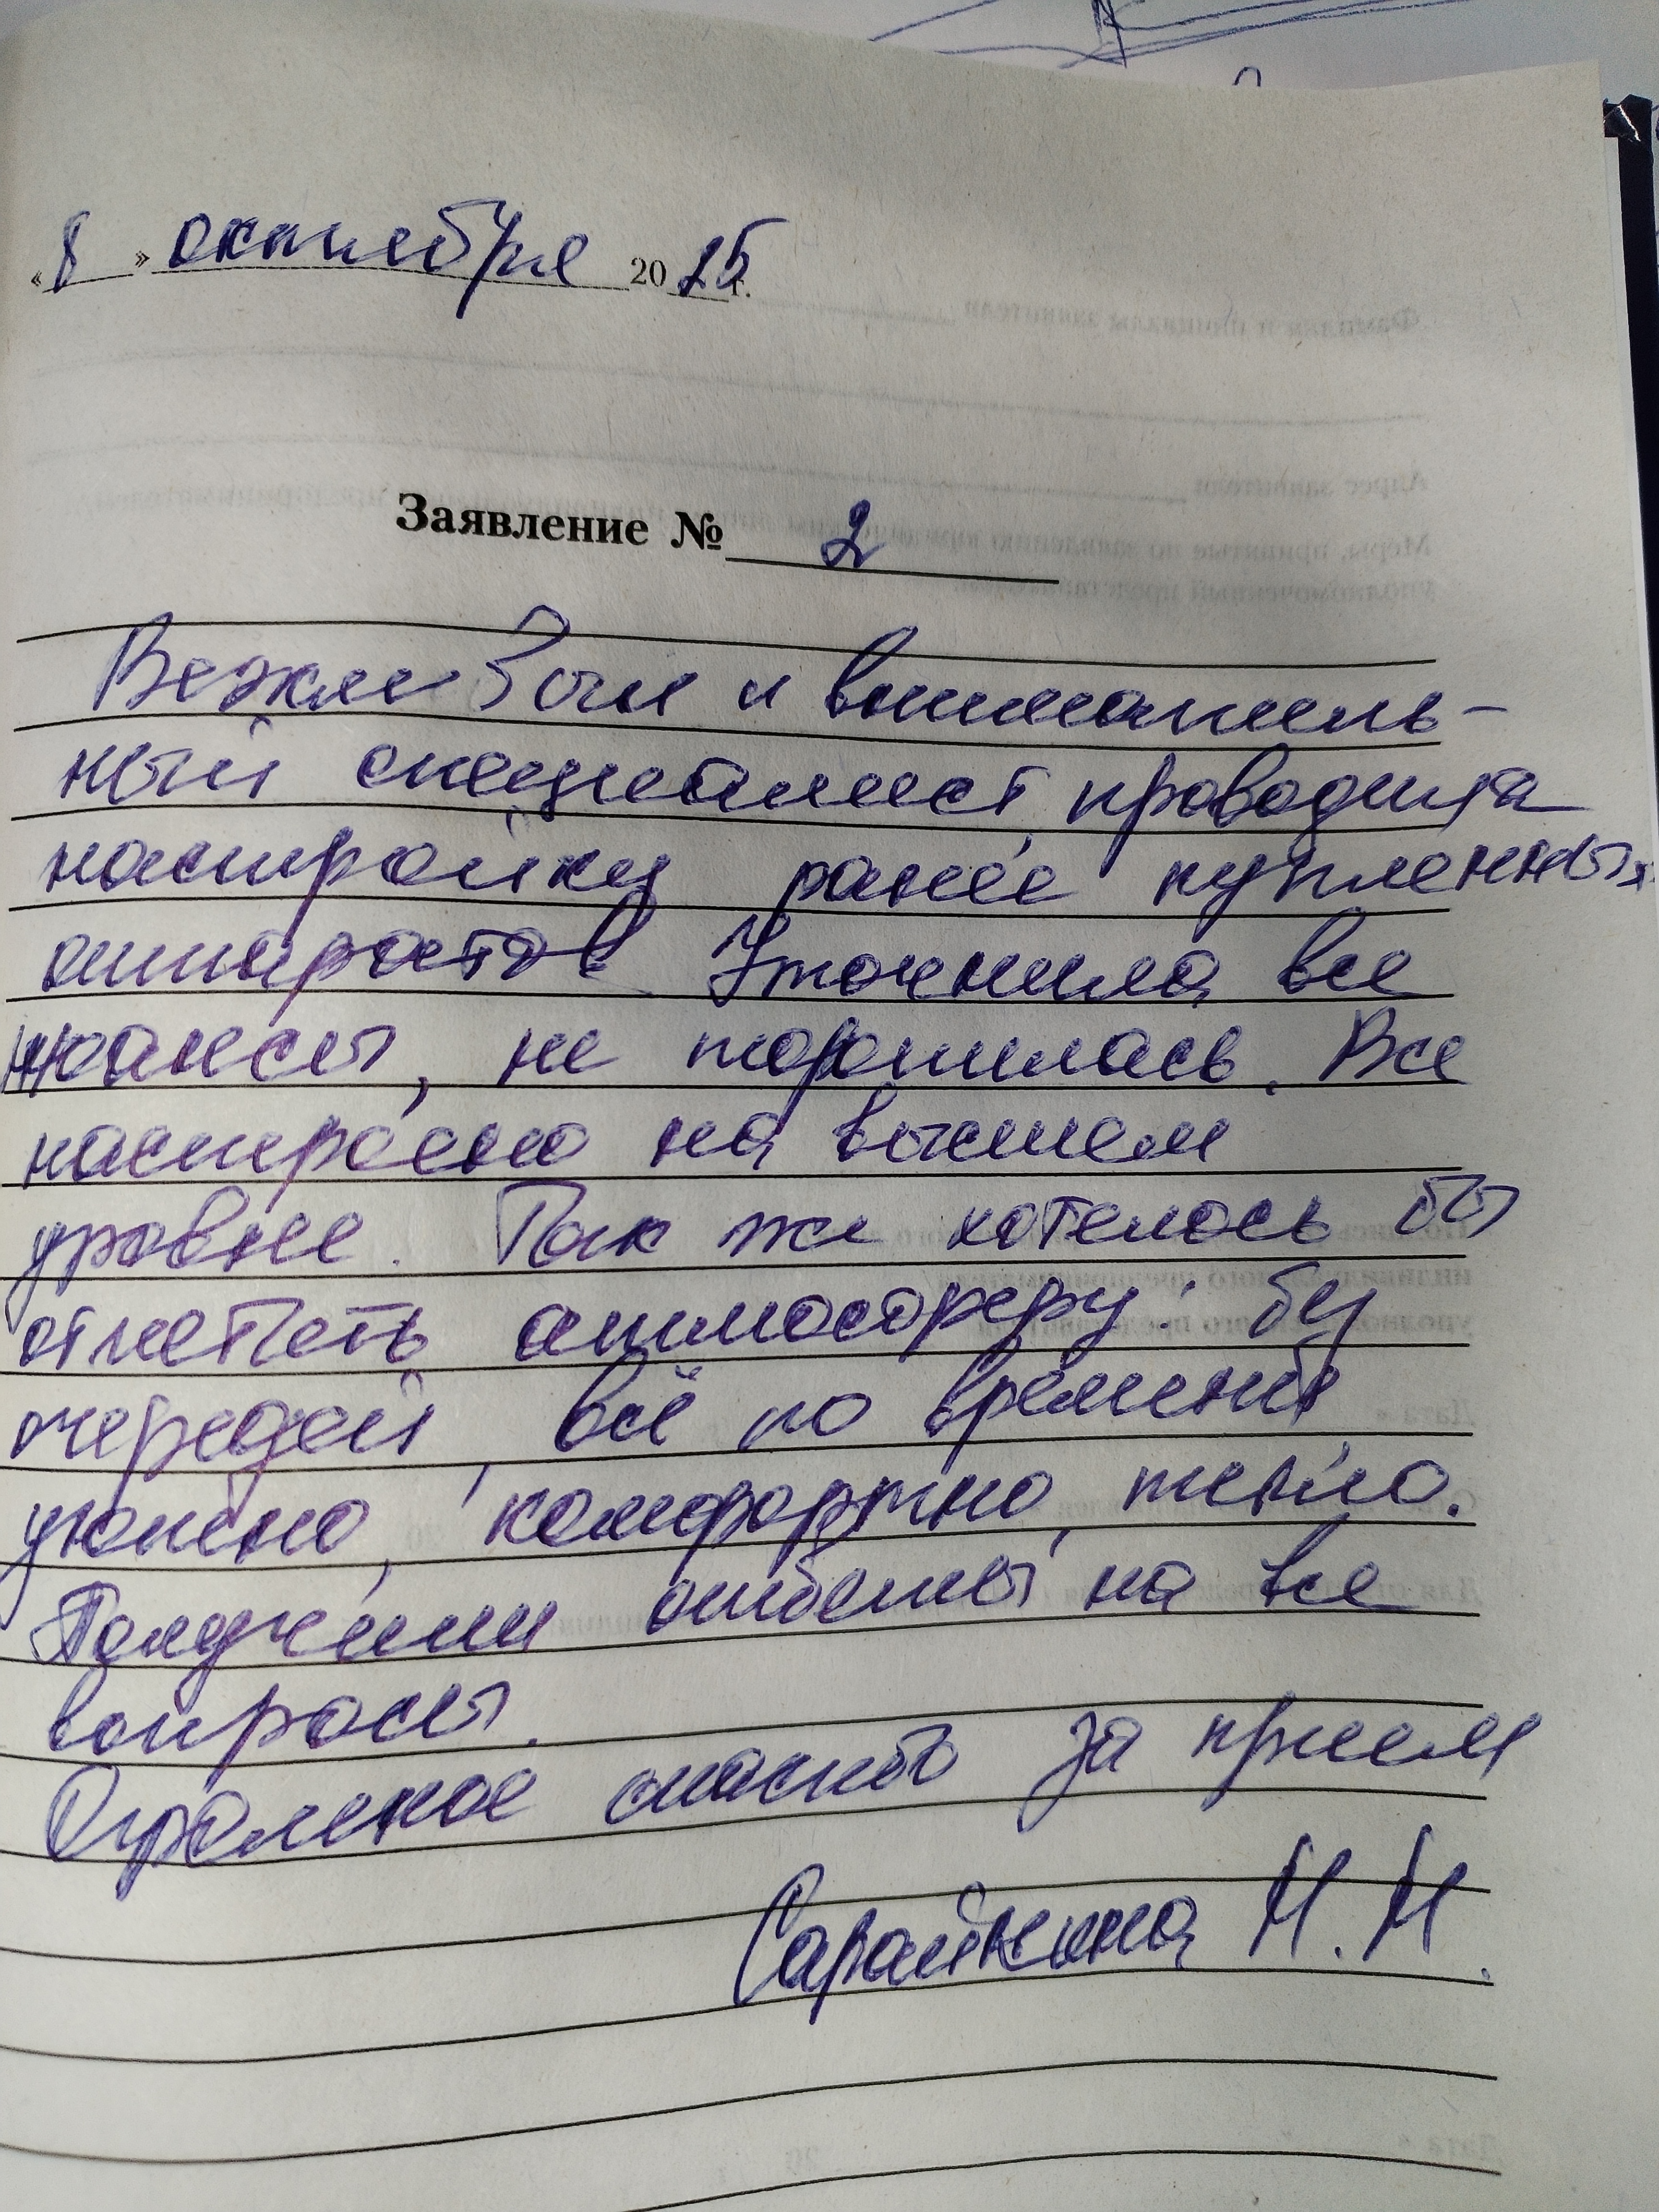 « 8 » октября 2025 г.
Заявление № 2
Вежливый и вниматель-
ный специалист проводила
настройку ранее купленных
аппаратов Уточнила все
нюансы, не торопилась. Все
настроено на высшем
уровне. Так же хотелось бы
отметить атмосферу: без
очередей, всё по времени
уютно, комфортно, тепло.
Получили ответы на все
вопросы.
Огромное спасибо за прием
Сарайкина М.М.